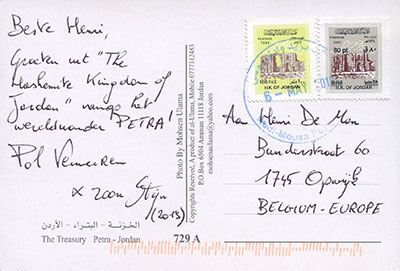 Beste Henri,
Groeten uit "The
Hashemite Kingdom of
Jordan" vanop het
wereldwonder PETRA!
Pol Vermeiren
x zoon Stijn
(2013)
الخزنة - البتراء - الأردن
The Treasury Petra - Jordan
729 A
Photo By Mohsen Ulama
Copyrights Reserved, A product of al-Ulama, Mobile 0777312483
P.O.Box 6504 Amman 11118 Jordan
POSTAGE
1994
100 FILS
H.K. OF JORDAN
POSTAGE
80 pt
H.K. OF JORDAN
Aan Henri De Mon
Bunderstraat 60
1745 Opwijk
BELGIUM - EUROPE